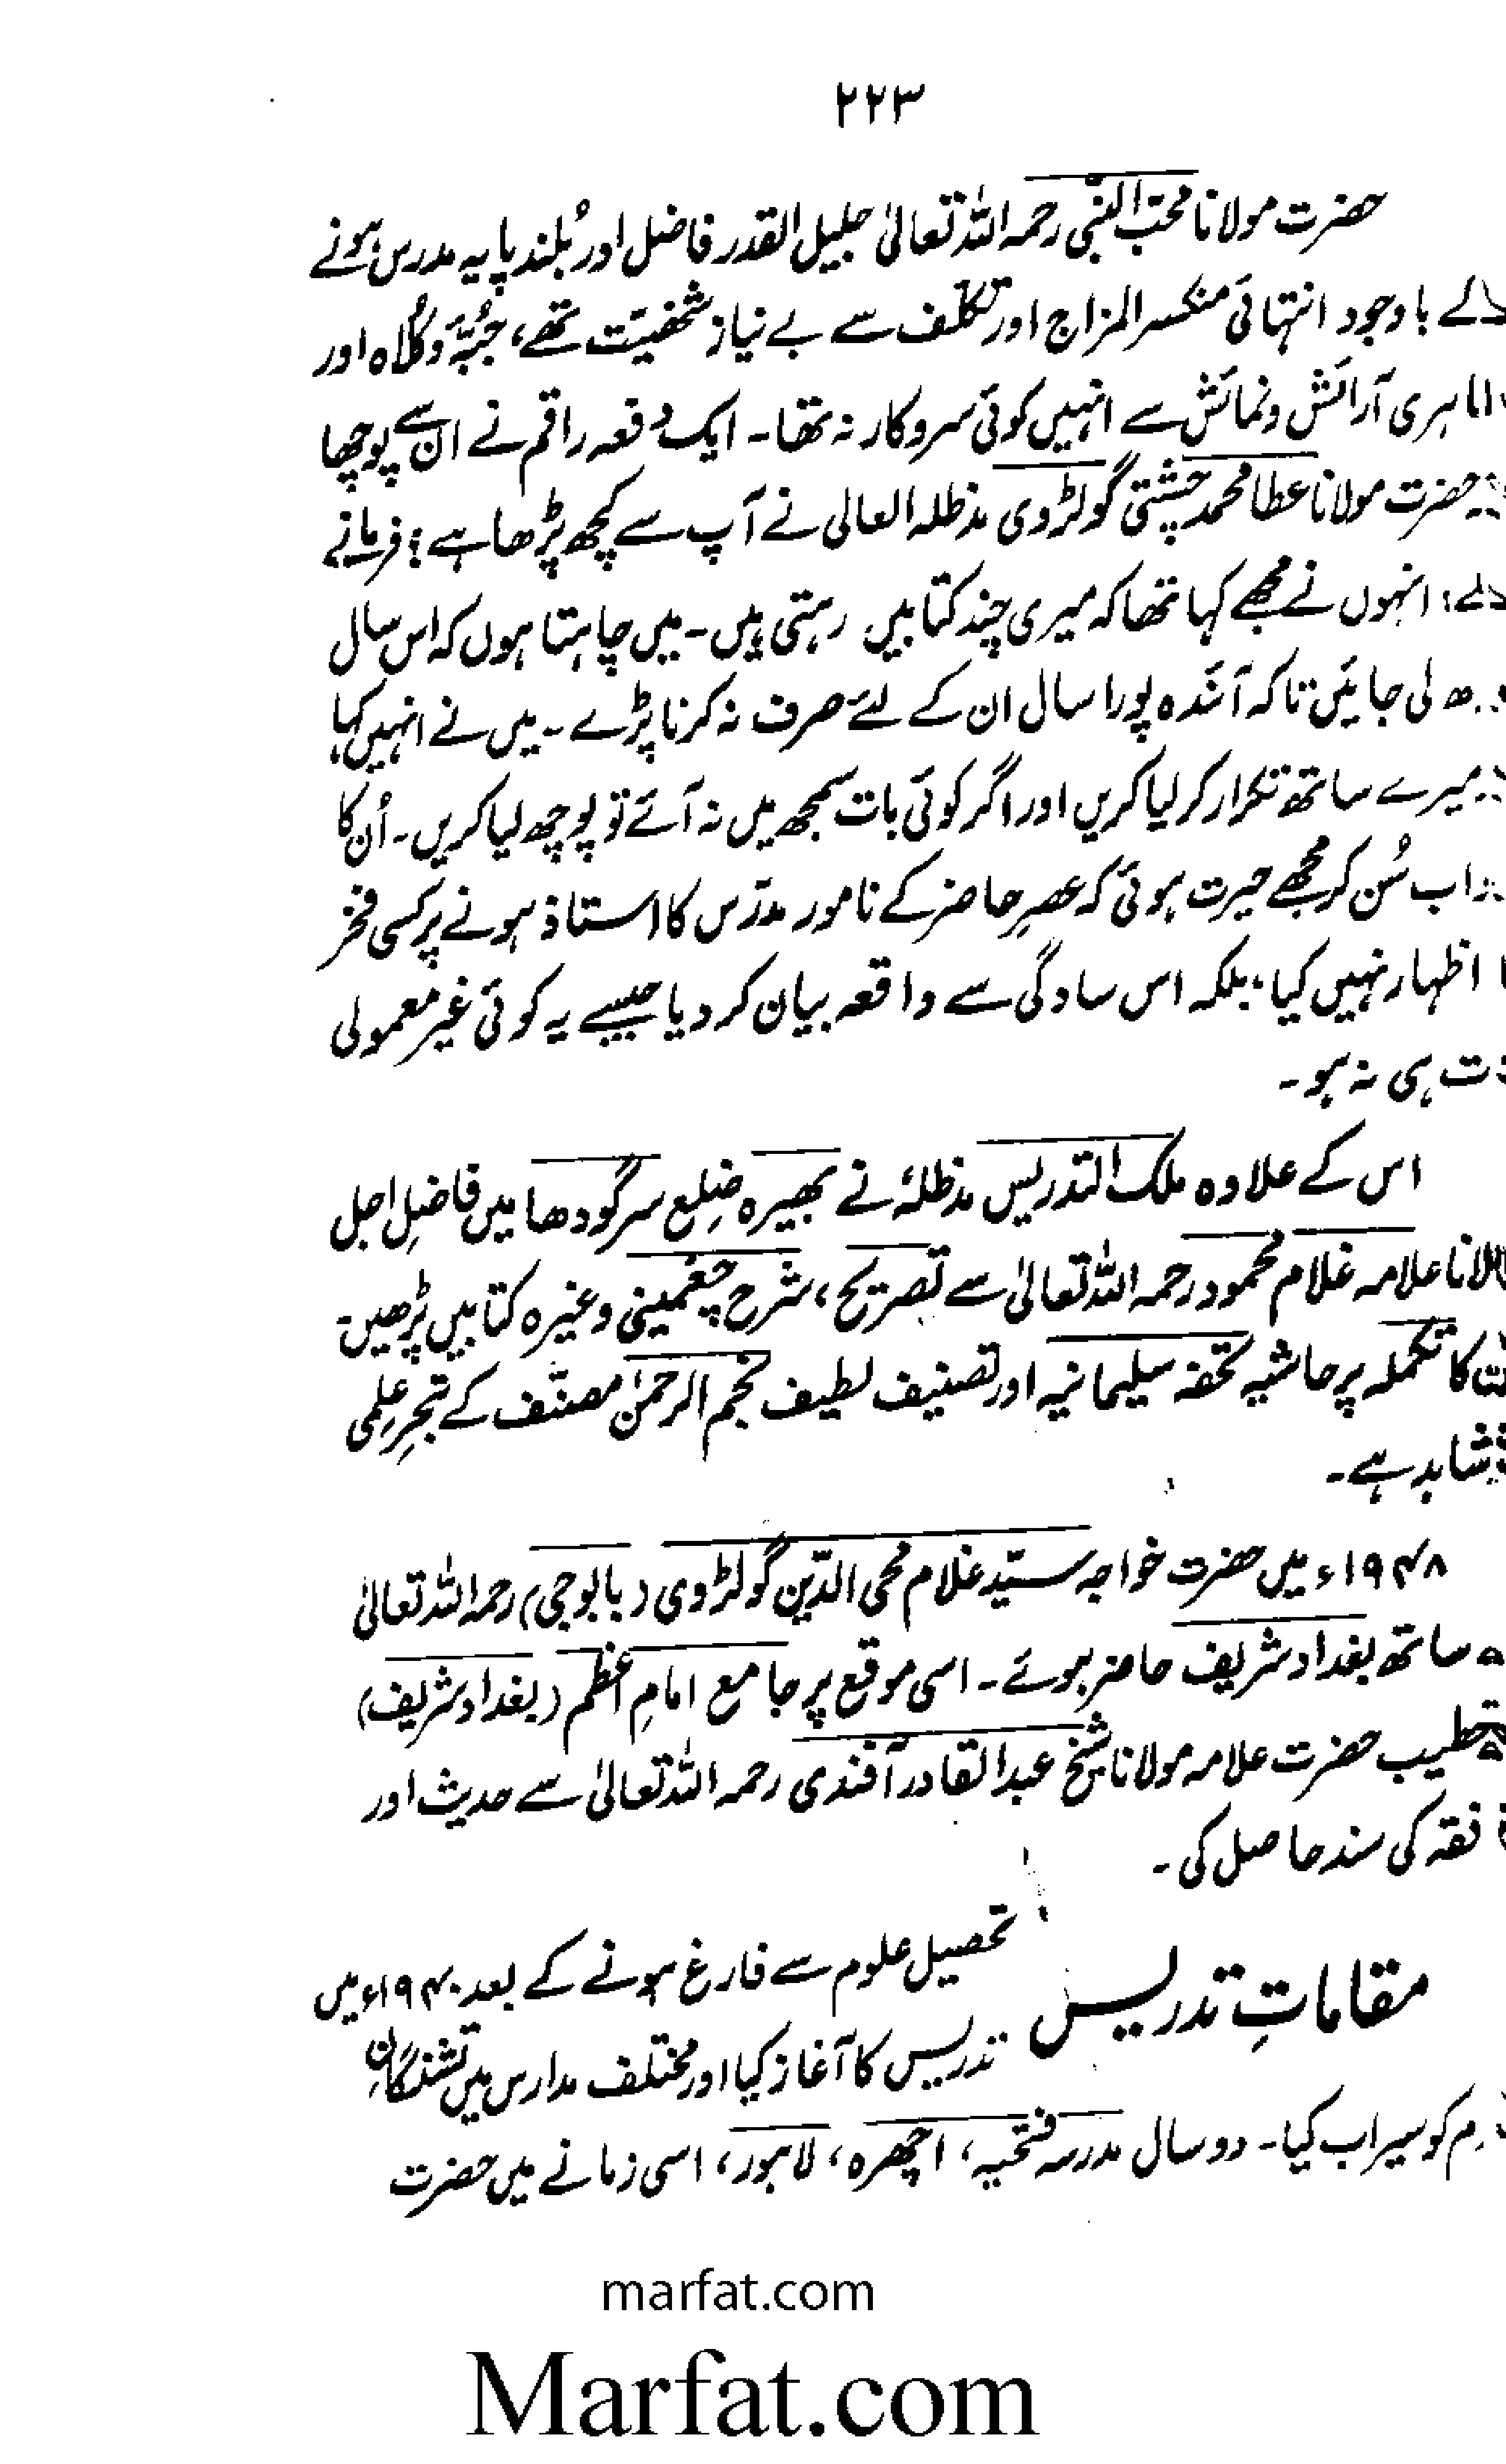 ۲۲۳
حضرت مولانا محبّ النبّی رحمہ اللہ تعالیٰ جلیل القدر فاضل اور بُلند پایہ مدرس ہونے
کے باوجود انتہائی منکسر المزاج اور تکلّف سے بے نیاز شخصیّت تھے، جُبّہ و کُلاہ اور
آرائش و نمائش سے انہیں کوئی سروکار نہ تھا۔ ایک دفعہ راقم نے ان سے پوچھا
حضرت مولانا عطا محمد چشتی گولڑوی مدظلہ العالی نے آپ سے کچھ پڑھا ہے؟ فرمانے
لگے: انہوں نے مجھے کہا تھا کہ میری چند کتابیں رہتی ہیں۔ میں چاہتا ہوں کہ اس سال
لی جائیں تاکہ آئندہ پورا سال ان کے لئے صرف نہ کرنا پڑے۔ میں نے انہیں کہا
میرے ساتھ تکرار کر لیا کریں اور اگر کوئی بات سمجھ میں نہ آئے تو پوچھ لیا کریں۔ اُن کا
سُن کر مجھے حیرت ہوئی کہ عصرِ حاضر کے نامور مدرّس کا استاذ ہونے پر کسی فخر
اظہار نہیں کیا؛ بلکہ اس سادگی سے واقعہ بیان کر دیا جیسے یہ کوئی غیر معمولی
ہی نہ ہو۔
اس کے علاوہ ملک التدریس مدظلہٗ نے بھیرہ ضلع سرگودھا میں فاضلِ اجل
علامہ غلام محمود رحمہ اللہ تعالیٰ سے تصریح، شرح چغمینی وغیرہ کتابیں پڑھیں۔
کا تکملہ پر حاشیہ تحفہ سلیمانیہ اور تصنیف لطیف نجم الرحمٰن مصنّف کے تبحّرِ علمی
شاہد ہے۔
۱۹۴۸ء میں حضرت خواجہ سیّد غلام محی الدّین گولڑوی (بابوجی) رحمہ اللہ تعالیٰ
ساتھ بغداد شریف حاضر ہوئے۔ اسی موقع پر جامع امامِ اعظم (بغداد شریف)
خطیب حضرت علامہ مولانا شیخ عبدالقادر آفندی رحمہ اللہ تعالیٰ سے حدیث اور
فقہ کی سند حاصل کی۔
مقاماتِ تدریس تحصیل علوم سے فارغ ہونے کے بعد ۱۹۴۰ء میں
تدریس کا آغاز کیا اور مختلف مدارس میں تشنگانِ
کو سیراب کیا۔ دو سال مدرسہ فتحیہ، اچھرہ، لاہور، اسی زمانے میں حضرت
marfat.com
Marfat.com